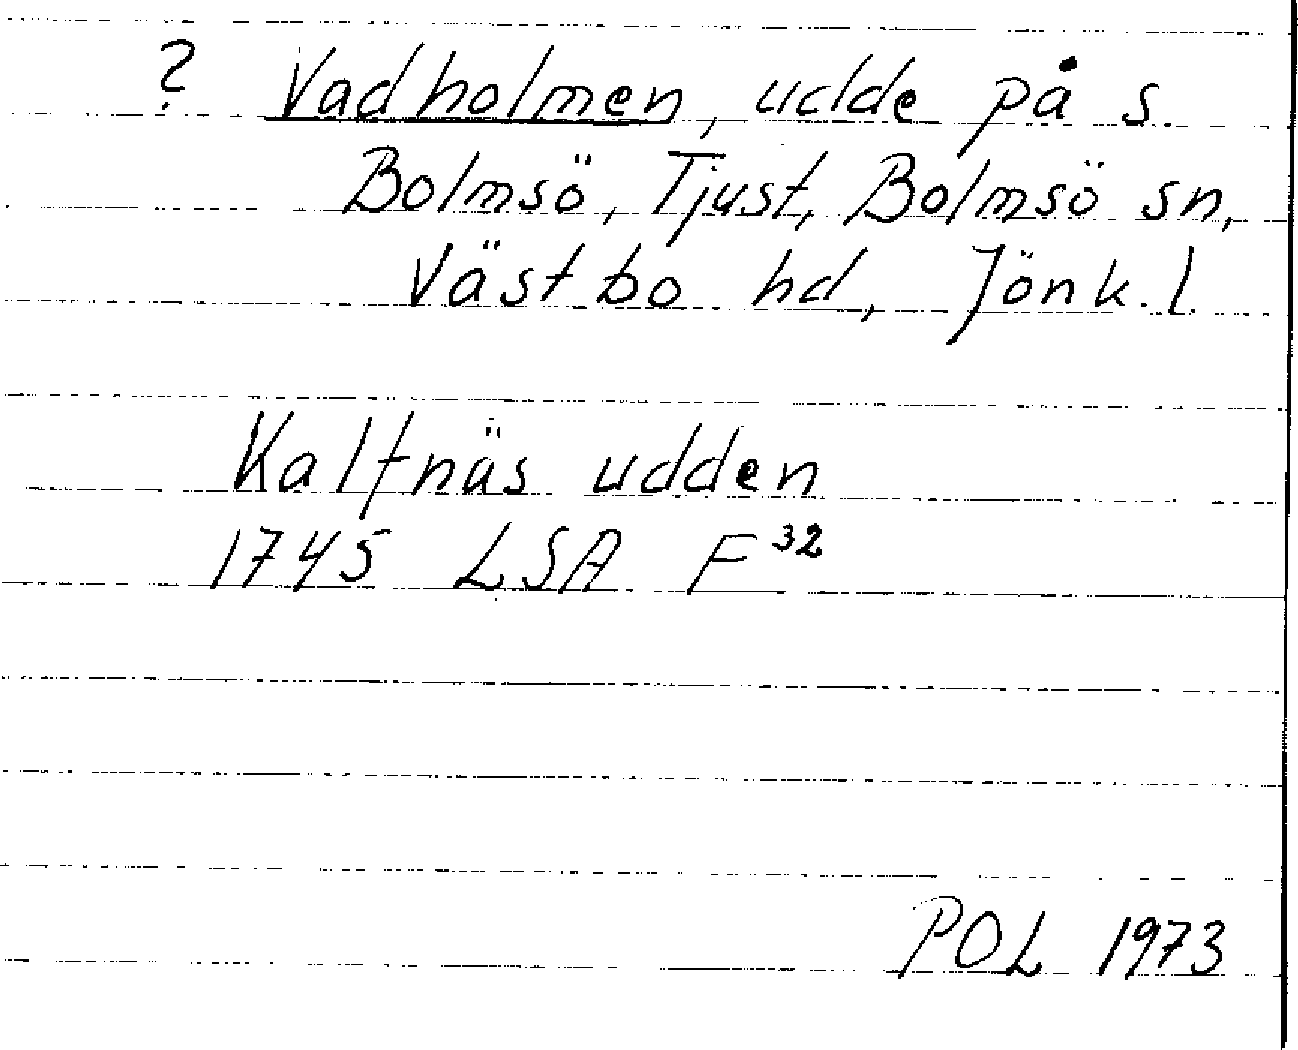 ? Vadholmen, udde på s.
Bolmsö, Tjust, Bolmsö sn,
Västbo hd, Jönk. l.
Kalfnäs udden
1745 LSA F 32
POL 1973